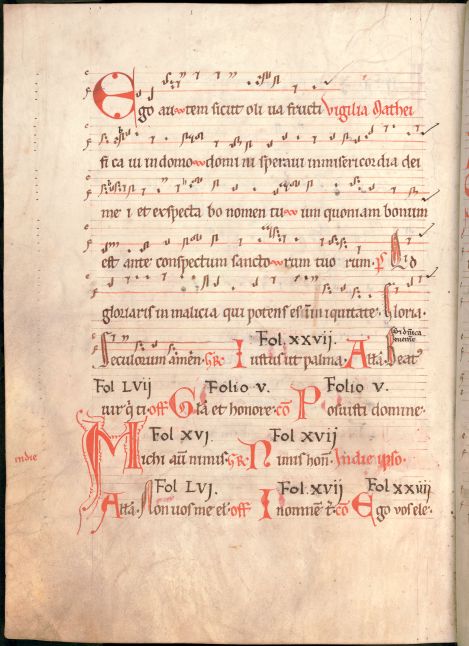 Ego autem sicut oli va fructi Vigilia Mathei
fi ca vi in domo domi ni speravi in misericordia dei
me i et exspecta bo nomen tu um quoniam bonum
est ante conspectum sancto rum tuo rum. ps Qid
gloriaris in malicia qui potens es in iniquitate. Gloria.
Fol. XXVII.
Seculorum amen. Iustus ut palma. Alla. Beat'
Fol LVIJ Folio V. Folio V.
vir q̄ ti off Gla et honore. co Posuisti domine.
Fol XVI. Fol XVIJ
Michi aut nimis. gr. Nimis hon. In die ipso.
in die
Fol LVJ. Fol XVIJ Fol XXIIIJ
Alla. Non vos me el. off In omnē t. co Ego vos ele.